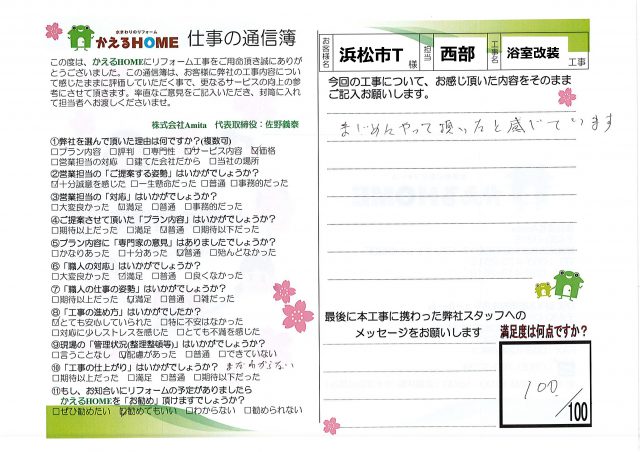 水まわりのリフォーム
かえるHOME 仕事の通信簿
この度は、かえるHOMEにリフォーム工事をご用命頂き誠にありが
とうございました。この通信簿は、お客様に弊社の工事内容につい
て感じたままに評価していただく事で、更なるサービスの向上の参
考にさせて頂きます。率直なご意見をご記入いただき、封筒に入れ
て担当者へお渡しくださいませ。
株式会社Amita 代表取締役：佐野義泰
①弊社を選んで頂いた理由は何ですか?(複数可)
□プラン内容 □評判 □専門性 ☑サービス内容 ☑価格
□営業担当の対応 □建てた会社だから □当社の場所
②営業担当の「ご提案する姿勢」はいかがでしょうか?
☑十分誠意を感じた □一生懸命だった □普通 □事務的だった
③営業担当の「対応」はいかがでしょうか?
□大変良かった ☑満足 □普通 □事務的だった
④ご提案させて頂いた「プラン内容」はいかがでしょうか?
□期待以上だった □満足 ☑普通 □期待以下だった
⑤プラン内容に「専門家の意見」はありましたでしょうか?
□かなりあった □十分あった ☑普通 □殆んどなかった
⑥「職人の対応」はいかがでしょうか?
□大変良かった ☑満足 □普通 □良くなかった
⑦「職人の仕事の姿勢」はいかがでしょうか?
□期待以上だった ☑満足 □普通 □雑だった
⑧「工事の進め方」はいかがでしたか?
☑とても安心していられた □特に不安はなかった
□対応に少しストレスを感じた □とても不満を感じた
⑨現場の「管理状況(整理整頓等)」はいかがでしょうか?
□言うことなし ☑配慮があった □普通 □できていない
⑩「工事の仕上がり」はいかがでしょうか? まだわからない
□期待以上だった □満足 □普通 □期待以下だった
⑪もし、お知合いにリフォームの予定がありましたら
かえるHOMEを「お勧め」頂けますでしょうか?
□ぜひ勧めたい ☑勧めてもいい □わからない □勧められない
お客様名 浜松市T 様 担当 西部 工事名 浴室改装 工事
今回の工事について、お感じ頂いた内容をそのまま
ご記入お願いします。
まじめにやって頂いたと感じています
最後に本工事に携わった弊社スタッフへの
メッセージをお願いします
満足度は何点ですか?
100
/100